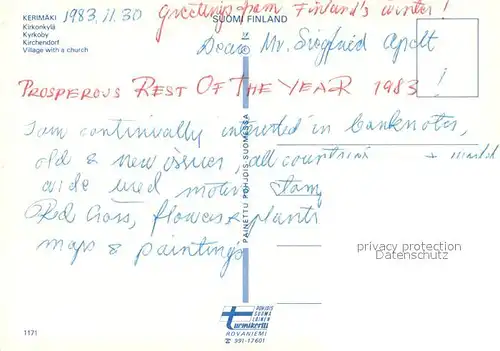 KERIMÄKI 1983.11.30 Greetings from Finland's winter!
Kirkonkylä SUOMI FINLAND
Kyrkoby
Kirchendorf
Village with a church
Dear Mr. Siegfried Apelt
PROSPEROUS REST OF THE YEAR 1983!
I am continually interested in banknotes,
old & new issues, all countries +
wide used motive stamp
Red Cross, flowers & plants
maps & paintings
PAINETTU POHJOIS SUOMESSA
privacy protection
Datenschutz
POHJOIS
SUOMA
LAINEN
turmikortti
ROVANIEMI
☎ 991-17601
1171